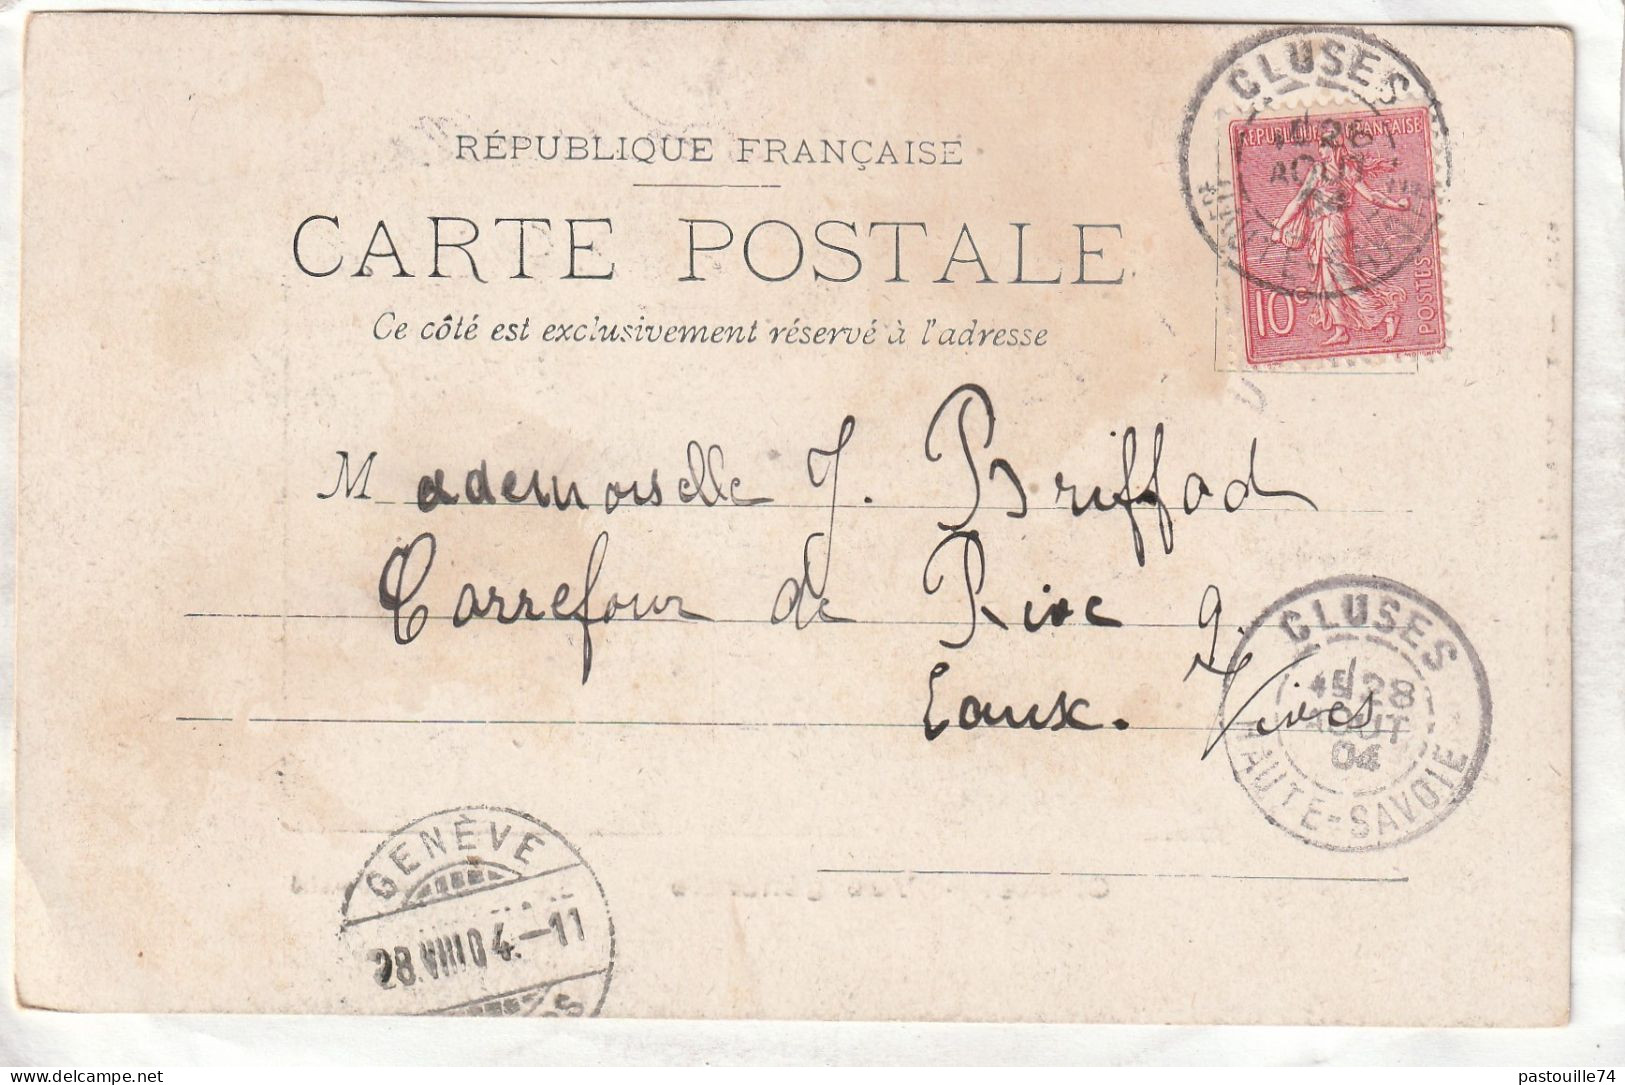 RÉPUBLIQUE FRANÇAISE
CARTE POSTALE
Ce côté est exclusivement réservé à l'adresse
CLUSES
28
AOUT
04
REPUBLIQUE FRANÇAISE
10c
POSTES
Mademoiselle J. Briffod
Carrefour de Rive 9.
Eaux. Vives
CLUSES
28
AOUT
04
HAUTE-SAVOIE
GENÈVE
28.VIII04.-11
delcampe.net
pastouille74